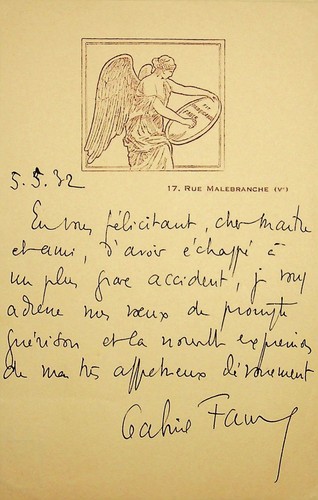 5.5.32
17, RUE MALEBRANCHE (Vᵉ)
En vous félicitant, cher maître
et ami, d'avoir échappé à
un plus grave accident, je vous
adresse mes vœux de prompte
guérison et la nouvelle expression
de mon très affectueux dévouement